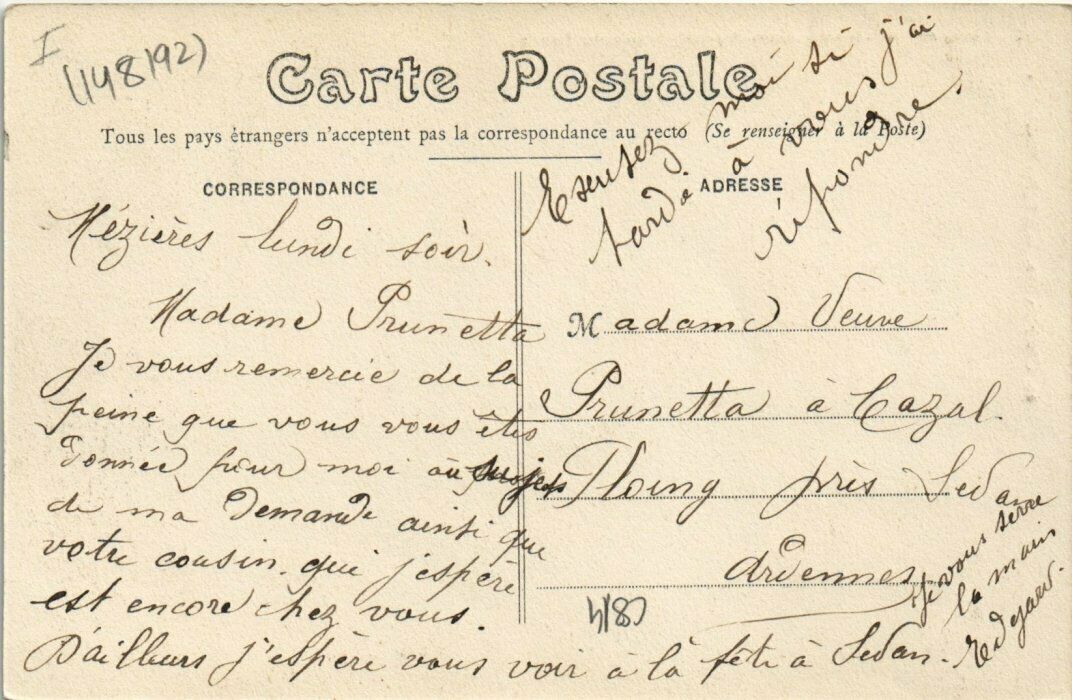 I
(148192)
Carte Postale
Tous les pays étrangers n'acceptent pas la correspondance au recto (Se renseigner à la Poste)
CORRESPONDANCE
Mézières lundi soir.
Madame Prunetta
Je vous remercie de la
peine que vous vous êtes
donnée pour moi au sujet
de ma demande ainsi que
votre cousin. qui j'espère
est encore chez vous.
D'ailleurs j'espère vous voir à la fête à Sedan.
ADRESSE
Excusez moi si j'ai
tardé à vous
répondre.
Madame Veuve
Prunetta à Cazal.
Floing près Sedan
Ardennes
Je vous serre
la main